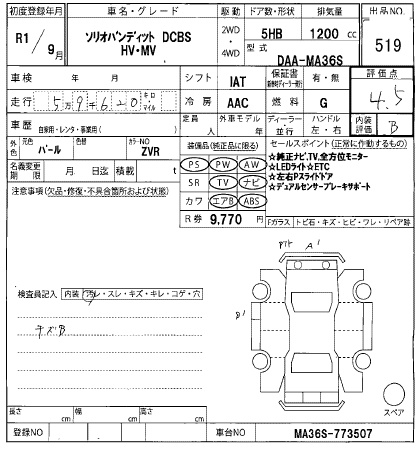 初度登録年月 車名・グレード 駆動 ドア数・形状 排気量 出品NO.
R1/9月 ソリオバンディット DCBS HV・MV 2WD・4WD 5HB 1200 cc 519
型式 DAA-MA36S
車検 年 月 シフト IAT 保証書 有・無 評価点
走行 5万9千620 キロ マイル 冷房 AAC 燃料 G 4.5
車歴 自家用・レンタ・事業用( ) 定員 人 外車 年 ディーラー・並行 ハンドル 左・右 内装評価 B
外色 元色 パール 色替 カラーNO ZVR
装備品(純正品に限る) セールスポイント(正常に作動するもの)
名義変更期限 月 日 迄 積載 t
PS PW AW
SR TV ナビ
カワ エアB ABS
☆純正ナビ,TV,全方位モニター
☆LEDライト☆ETC
☆左右Pスライドドア
☆デュアルセンサーブレーキサポート
注意事項(欠品・修復・不具合箇所および状態)
R券 9,770 円
Fガラス トビ石・キズ・ヒビ・ワレ・リペア跡
A1
B1
検査員記入 内装 汚れ・スレ・キズ・キレ・コゲ・穴
キズB
スペア
長さ cm 幅 cm 高さ cm
登録NO 車台NO MA36S-773507